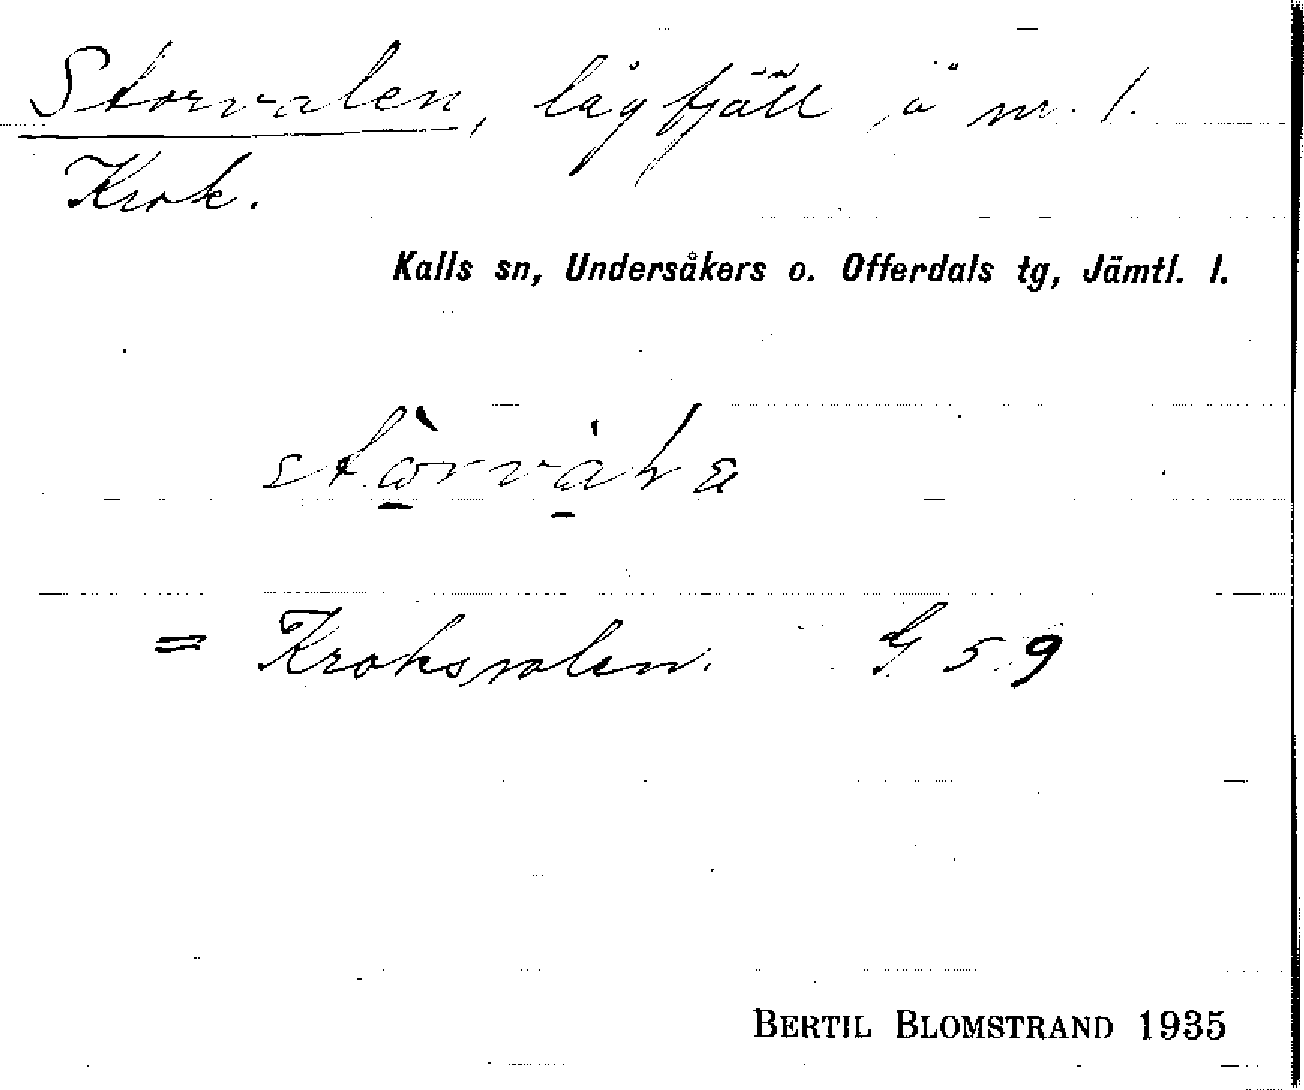 Storvalen, lågfjäll å nr. 1.
Krok.
Kalls sn, Undersåkers o. Offerdals tg, Jämtl. l.
= Kroksvalen. G 5 9
BERTIL BLOMSTRAND 1935